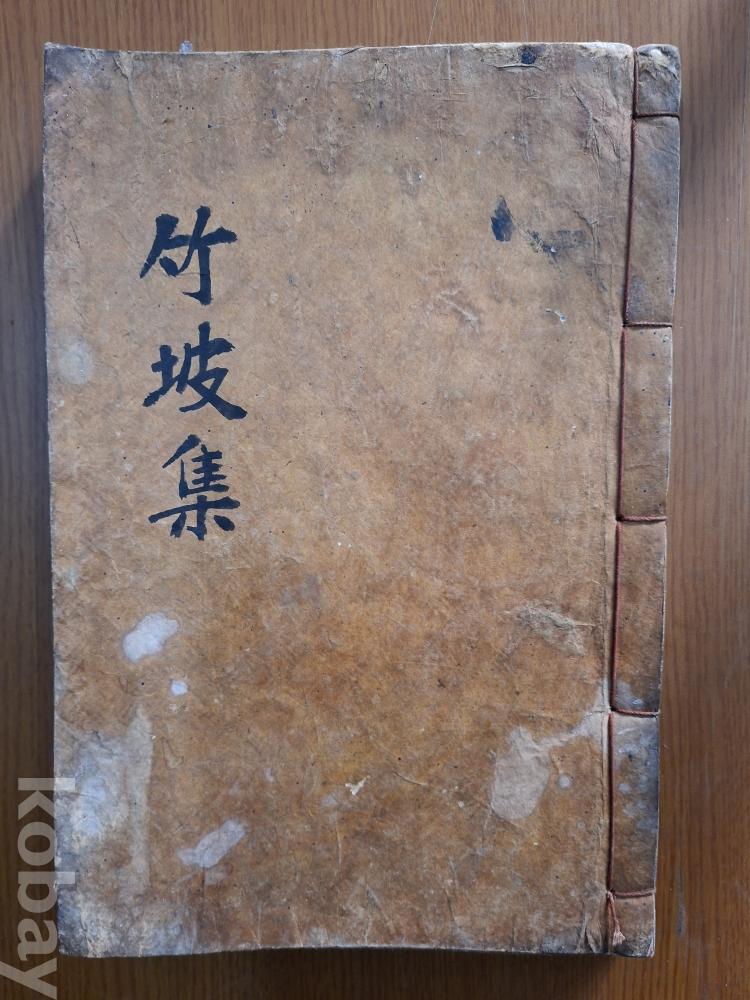 竹坡集
kobay